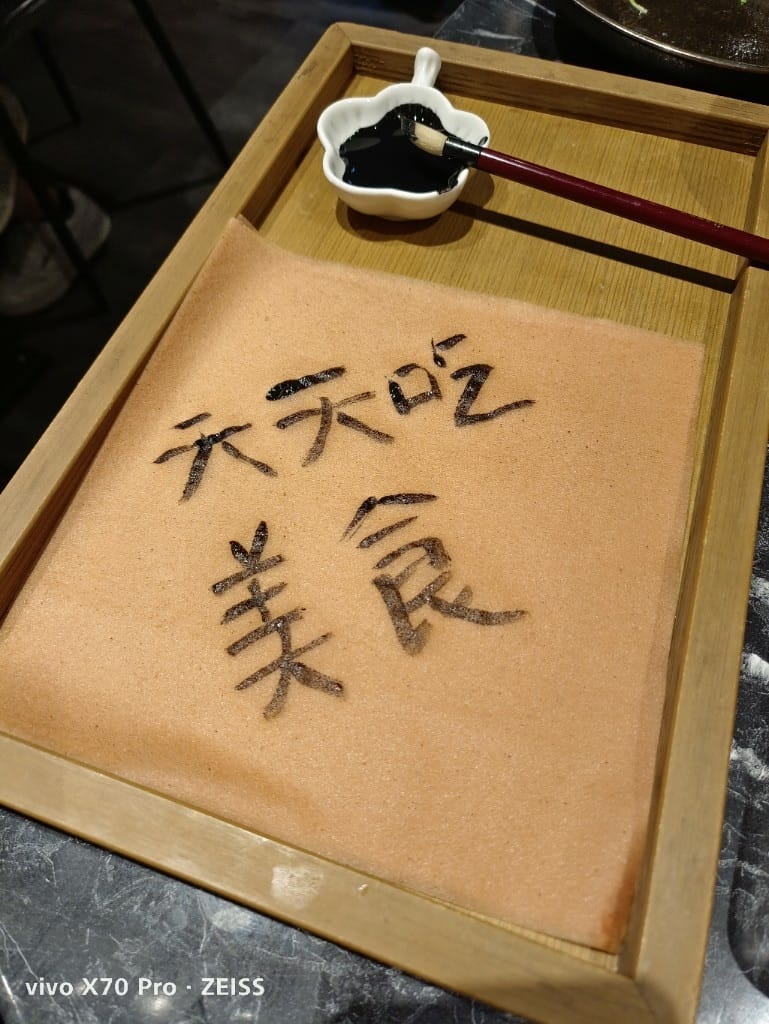 天天吃
美食
vivo X70 Pro · ZEISS